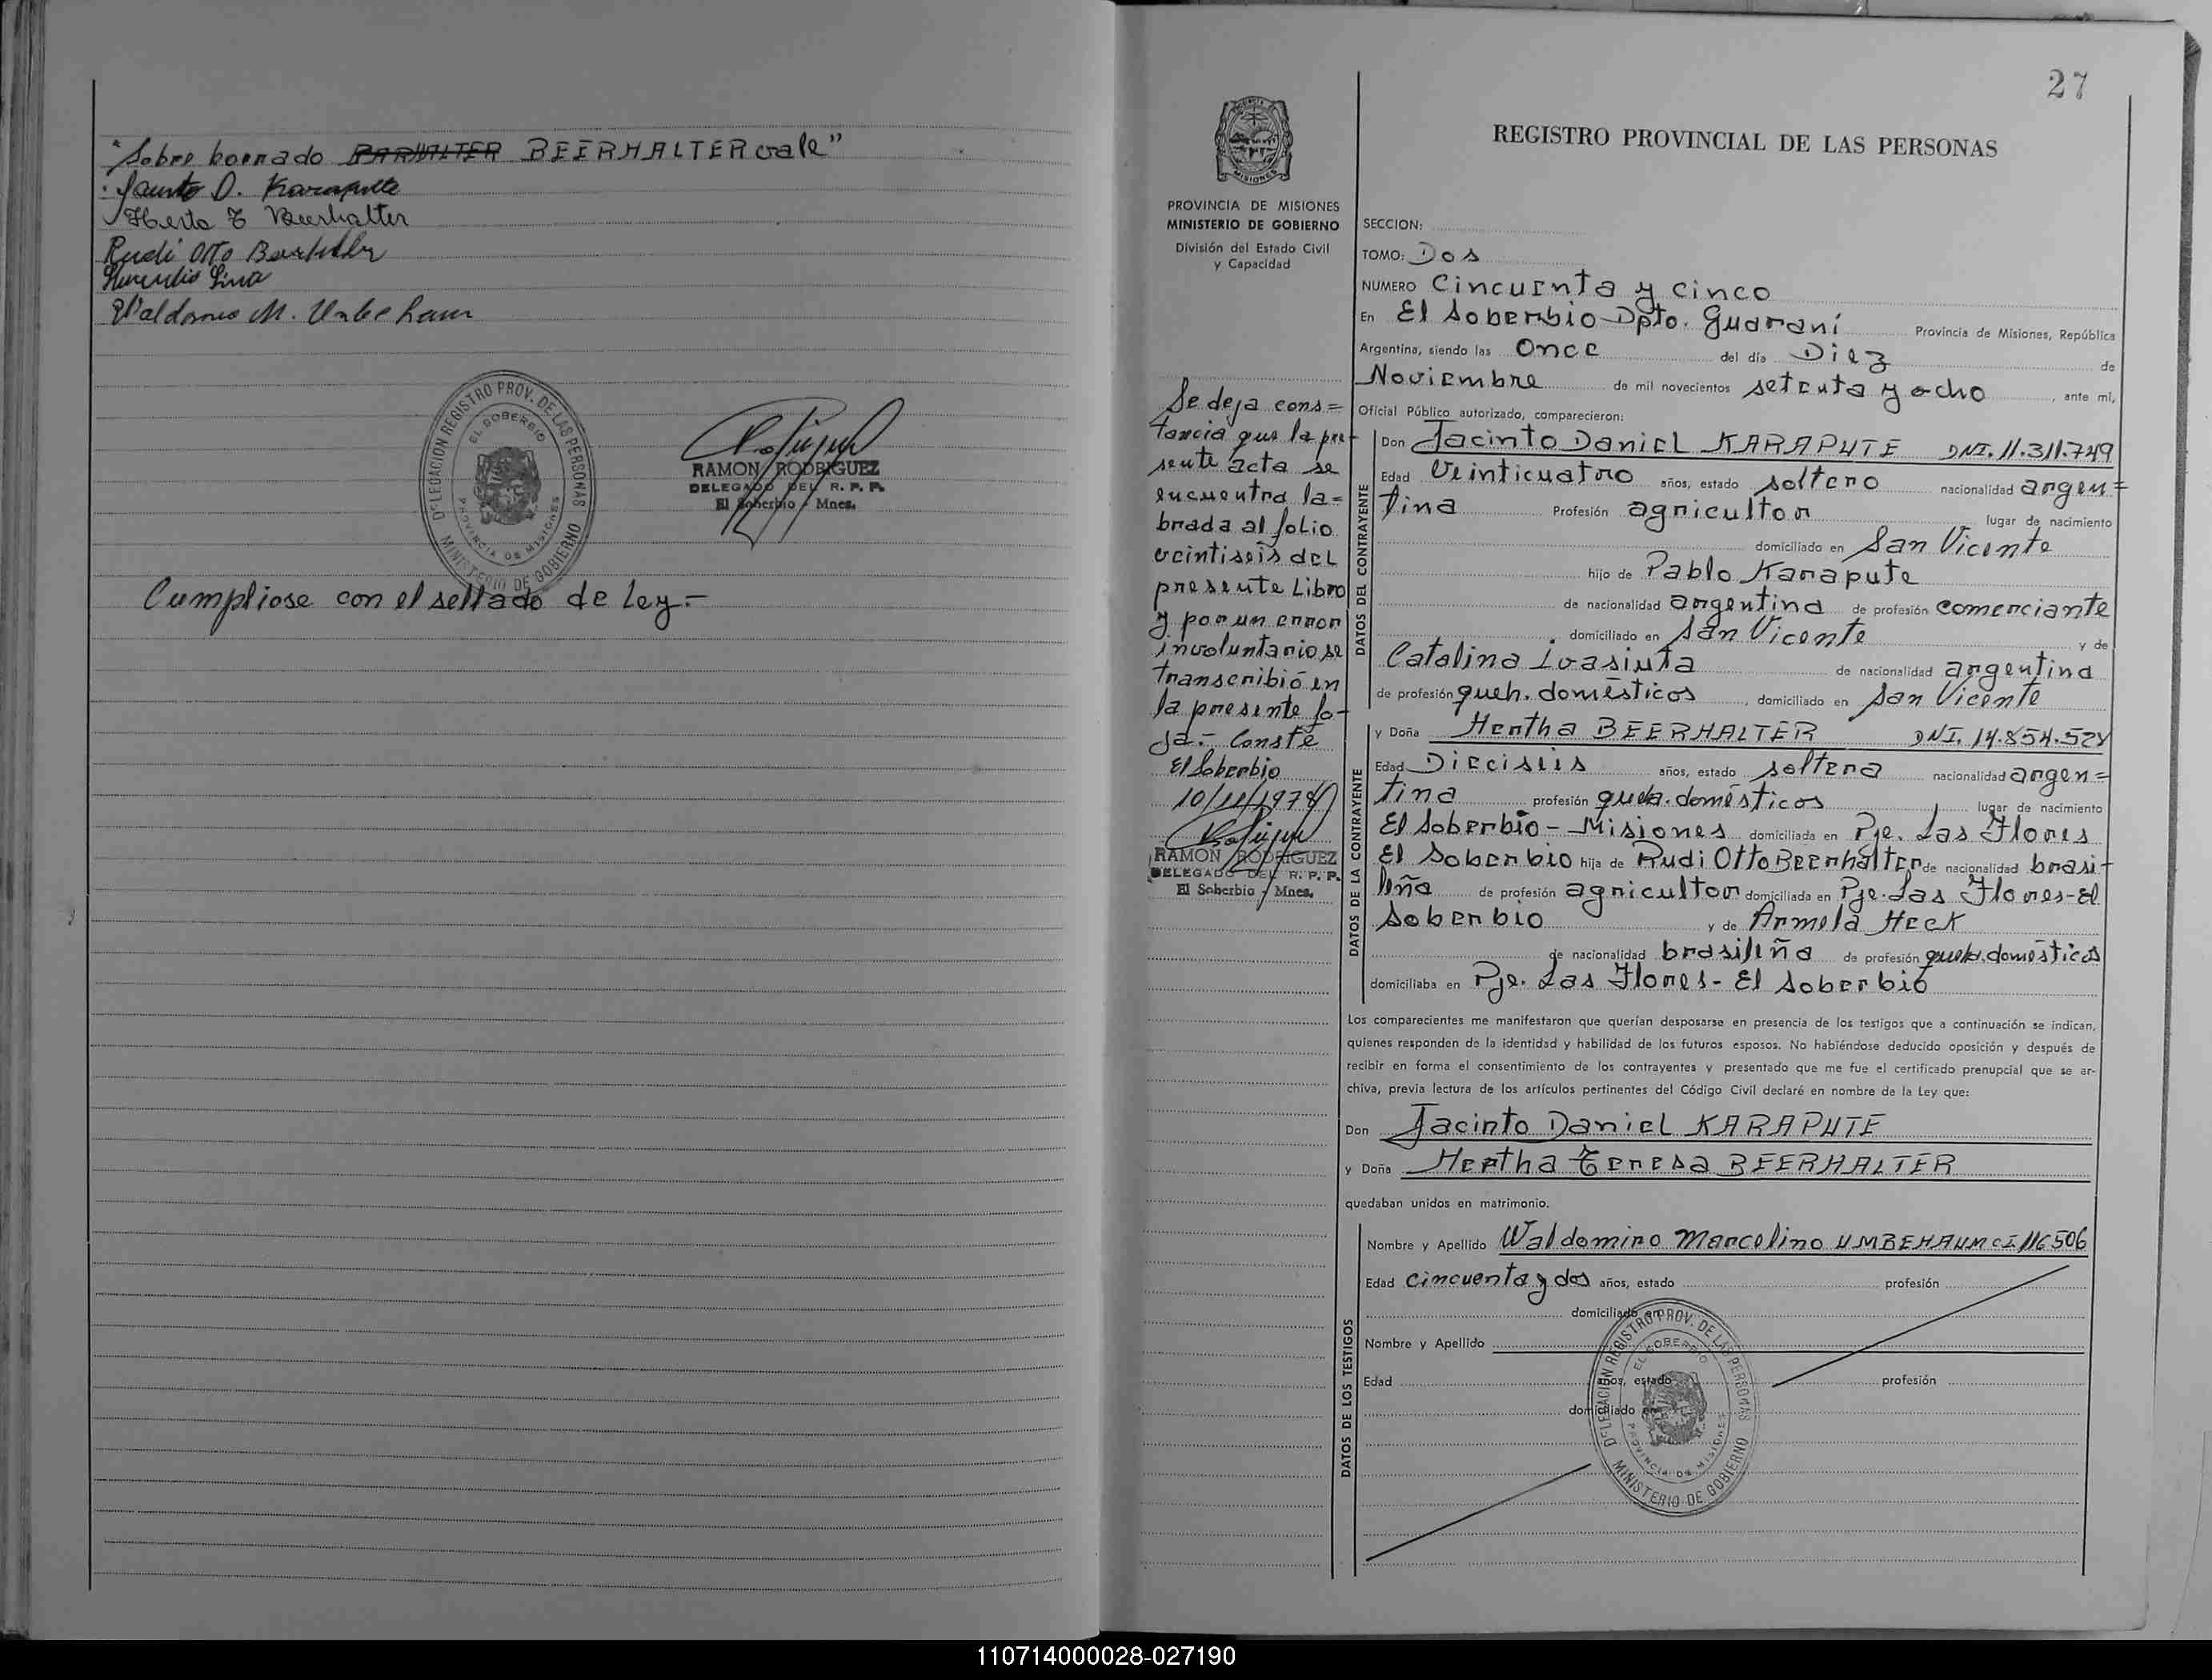 "Sobre borrado BARHALTER BEERHALTER vale"
Jacinto D. Karapute
Herta T Beerhalter
Rudi Otto Beerhalter
Lino
Waldomiro M. Umbehaum
DELEGACION REGISTRO PROV. DE LAS PERSONAS
EL SOBERBIO
PROVINCIA DE MISIONES
MINISTERIO DE GOBIERNO
RAMON RODRIGUEZ
DELEGADO DEL R. P. P.
El Soberbio - Mnes.
Cumpliose con el sellado de Ley.-
27
MISIONES
PROVINCIA DE MISIONES
MINISTERIO DE GOBIERNO
División del Estado Civil
y Capacidad
Se deja cons=
tancia que la pre-
sente acta se
encuentra la=
brada al folio
veintiseis del
presente Libro
y por un error
involuntario se
transcribió en
la presente fo-
ja.- Conste
El Soberbio
10/11/1978
RAMON RODRIGUEZ
DELEGADO DEL R. P. P.
El Soberbio - Mnes.
REGISTRO PROVINCIAL DE LAS PERSONAS
SECCION:
TOMO: Dos
NUMERO Cincuenta y cinco
En El Soberbio-Dpto. Guaraní Provincia de Misiones, República
Argentina, siendo las Once del día Diez de
Noviembre de mil novecientos setenta y ocho, ante mí,
Oficial Público autorizado, comparecieron:
DATOS DEL CONTRAYENTE
Don Jacinto Daniel KARAPUTE DNI. 11.311.749
Edad Veinticuatro años, estado soltero nacionalidad argen=
tina Profesión agricultor lugar de nacimiento
domiciliado en San Vicente
hijo de Pablo Karapute
de nacionalidad argentina de profesión comerciante
domiciliado en San Vicente y de
Catalina Ivasiuta de nacionalidad argentina
de profesión queh. domésticos, domiciliado en San Vicente
DATOS DE LA CONTRAYENTE
y Doña Hertha BEERHALTER DNI. 14.854.528
Edad Dieciseis años, estado soltera nacionalidad argen=
tina profesión queh. domésticos lugar de nacimiento
El Soberbio - Misiones domiciliada en Pje. Las Flores
El Soberbio hija de Rudi Otto Beerhalter de nacionalidad brasi-
leña de profesión agricultor domiciliada en Pje. Las Flores-El
Soberbio y de Armela Heck
de nacionalidad brasileña de profesión queh. domésticos
domiciliaba en Pje. Las Flores- El Soberbio
Los comparecientes me manifestaron que querían desposarse en presencia de los testigos que a continuación se indican,
quienes responden de la identidad y habilidad de los futuros esposos. No habiéndose deducido oposición y después de
recibir en forma el consentimiento de los contrayentes y presentado que me fue el certificado prenupcial que se ar-
chiva, previa lectura de los artículos pertinentes del Código Civil declaré en nombre de la Ley que:
Don Jacinto Daniel KARAPUTE
y Doña Hertha Teresa BEERHALTER
quedaban unidos en matrimonio.
DATOS DE LOS TESTIGOS
Nombre y Apellido Waldomiro Marcelino UMBEHAUM CI 116506
Edad cincuenta y dos años, estado profesión
domiciliado en
Nombre y Apellido
Edad años, estado profesión
domiciliado en
DELEGACION REGISTRO PROV. DE LAS PERSONAS
EL SOBERBIO
PROVINCIA DE MISIONES
MINISTERIO DE GOBIERNO
110714000028-027190